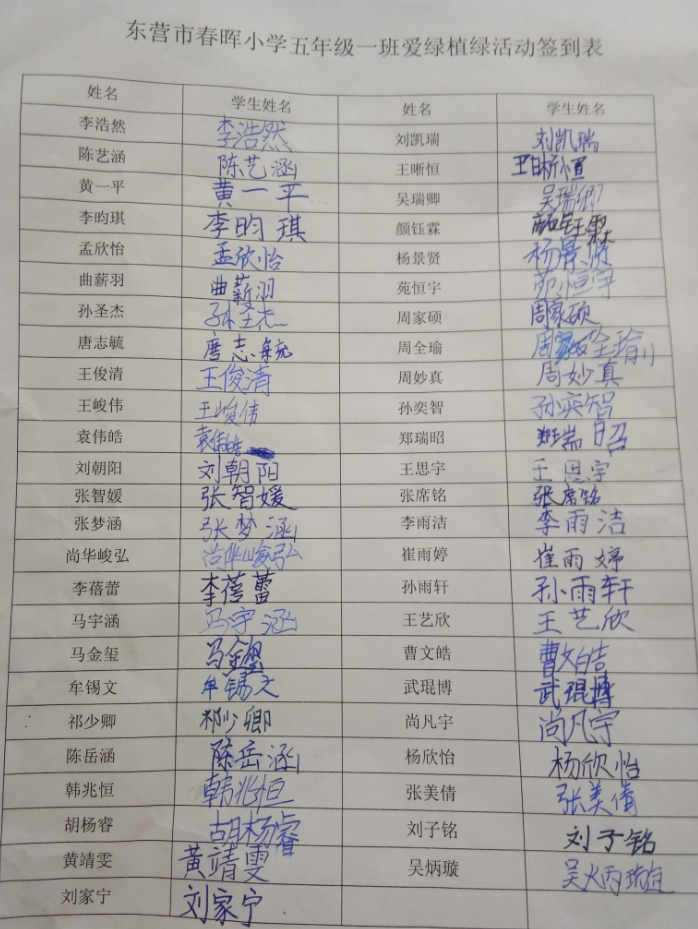 东营市春晖小学五年级一班爱绿植绿活动签到表
姓名 学生姓名 姓名 学生姓名
李浩然 李浩然 刘凯瑞 刘凯瑞
陈艺涵 陈艺涵 王晰恒 王晰恒
黄一平 黄一平 吴瑞卿 吴瑞卿
李昀琪 李昀琪 颜钰霖 颜钰霖
孟欣怡 孟欣怡 杨景贤 杨景贤
曲薪羽 曲薪羽 苑恒宇 苑恒宇
孙圣杰 孙圣杰 周家硕 周家硕
唐志毓 唐志毓 周全瑜 周全瑜
王俊清 王俊清 周妙真 周妙真
王峻伟 王峻伟 孙奕智 孙奕智
袁伟皓 袁伟皓 郑瑞昭 郑瑞昭
刘朝阳 刘朝阳 王思宇 王思宇
张智媛 张智媛 张席铭 张席铭
张梦涵 张梦涵 李雨洁 李雨洁
尚华峻弘 尚华峻弘 崔雨婷 崔雨婷
李蓓蕾 李蓓蕾 孙雨轩 孙雨轩
马宇涵 马宇涵 王艺欣 王艺欣
马金玺 马金玺 曹文皓 曹文皓
牟锡文 牟锡文 武琨博 武琨博
祁少卿 祁少卿 尚凡宇 尚凡宇
陈岳涵 陈岳涵 杨欣怡 杨欣怡
韩兆恒 韩兆恒 张美倩 张美倩
胡杨睿 胡杨睿 刘子铭 刘子铭
黄靖雯 黄靖雯 吴炳璇 吴炳璇
刘家宁 刘家宁